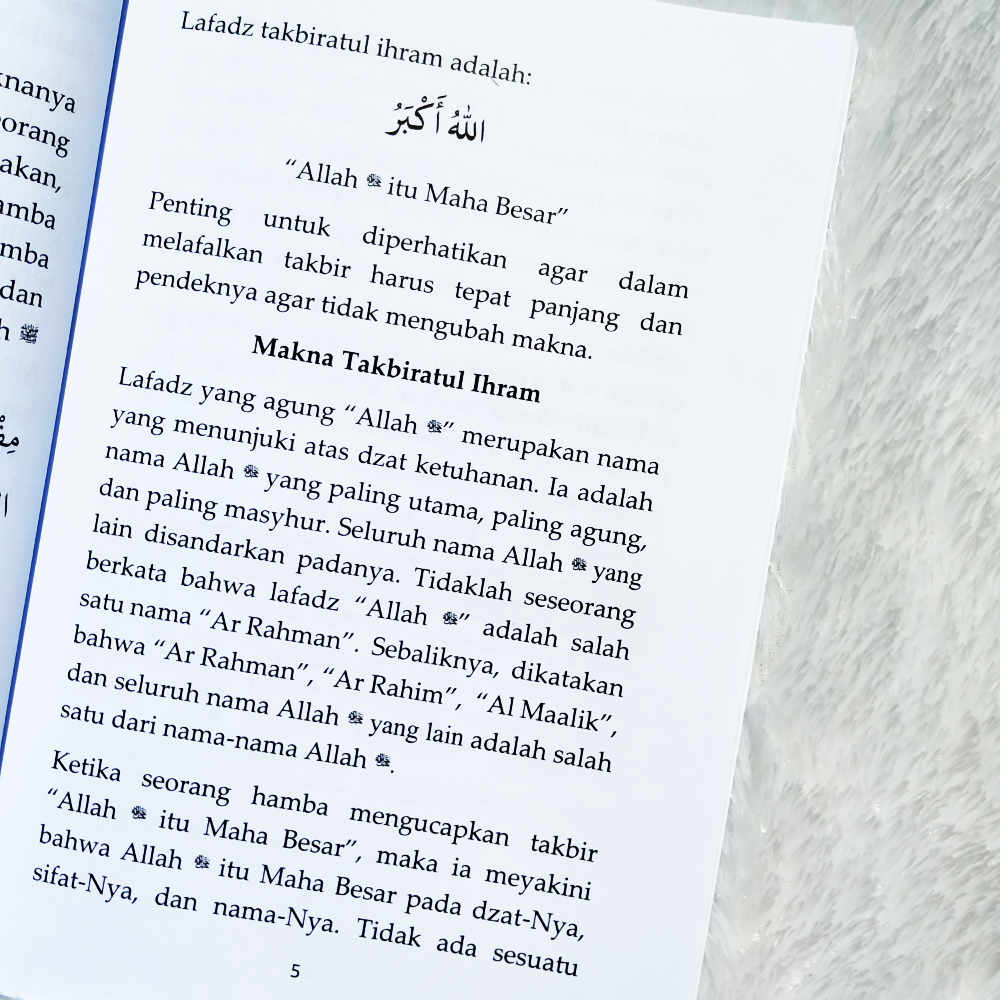 knanya
orang
akan,
amba
mba
dan
h ﷺ
Lafadz takbiratul ihram adalah:
اللهُ أَكْبَرُ
“Allah ﷻ itu Maha Besar”
Penting untuk diperhatikan agar dalam
melafalkan takbir harus tepat panjang dan
pendeknya agar tidak mengubah makna.
Makna Takbiratul Ihram
Lafadz yang agung “Allah ﷻ” merupakan nama
yang menunjuki atas dzat ketuhanan. Ia adalah
nama Allah ﷻ yang paling utama, paling agung,
dan paling masyhur. Seluruh nama Allah ﷻ yang
lain disandarkan padanya. Tidaklah seseorang
berkata bahwa lafadz “Allah ﷻ” adalah salah
satu nama “Ar Rahman”. Sebaliknya, dikatakan
bahwa “Ar Rahman”, “Ar Rahim”, “Al Maalik”,
dan seluruh nama Allah ﷻ yang lain adalah salah
satu dari nama-nama Allah ﷻ.
Ketika seorang hamba mengucapkan takbir
“Allah ﷻ itu Maha Besar”, maka ia meyakini
bahwa Allah ﷻ itu Maha Besar pada dzat-Nya,
sifat-Nya, dan nama-Nya. Tidak ada sesuatu
5